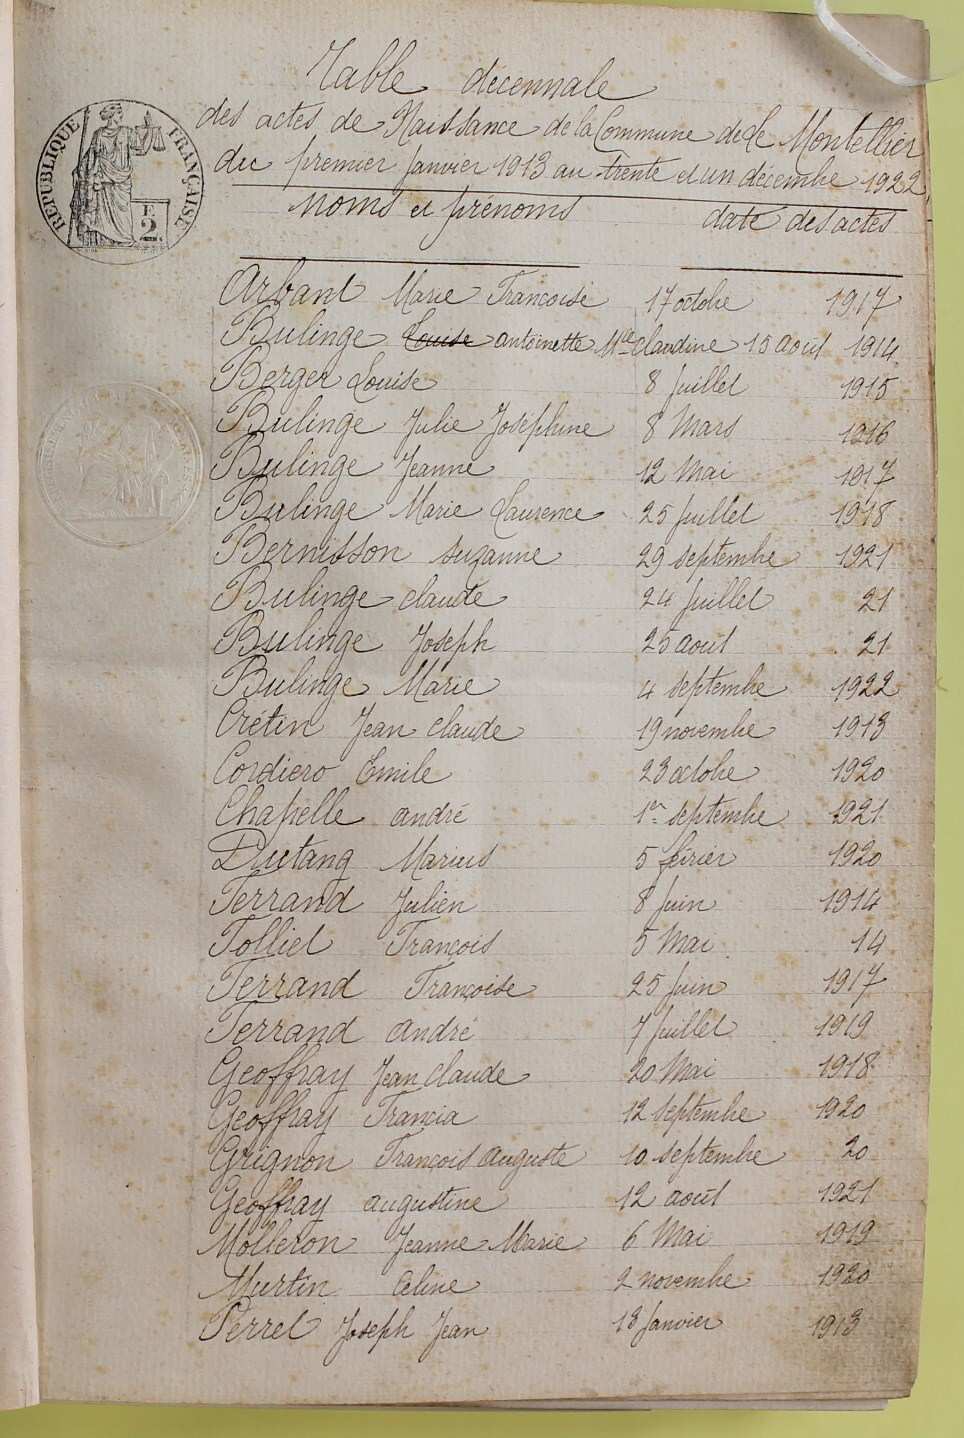 Table décennale
des actes de Naissance de la Commune de Le Montellier
du premier Janvier 1913 au trente et un décembre 1922
REPUBLIQUE FRANÇAISE
E
2
noms et prénoms date des actes
Arbant Marie Françoise 17 octobre 1917
Bulinge Louise antoinette Mie Claudine 15 aout 1914
Berger Louise 8 Juillet 1915
Bulinge Julie Joséphine 8 Mars 1916
Bulinge Jeanne 12 Mai 1917
Bulinge Marie Laurence 25 Juillet 1918
Bernisson suzanne 29 septembre 1921
Bulinge claude 24 Juillet 21
Bulinge Joseph 25 aout 21
Bulinge Marie 4 septembre 1922
Crétin Jean claude 19 novembre 1913
Cordiero Emile 23 octobre 1920
Chapelle andré 1er septembre 1921
Dutang Marius 5 février 1920
Ferrand Julien 8 Juin 1914
Folliet François 5 Mai 14
Ferrand Françoise 25 Juin 1917
Ferrand andré 7 Juillet 1919
Geoffray Jean claude 20 Mai 1918
Geoffray Francia 12 septembre 1920
Grignon François auguste 10 septembre 20
Geoffray augustine 12 août 1921
Molleron Jeanne Marie 6 Mai 1919
Murtin Céline 2 novembre 1920
Perret Joseph Jean 18 Janvier 1913